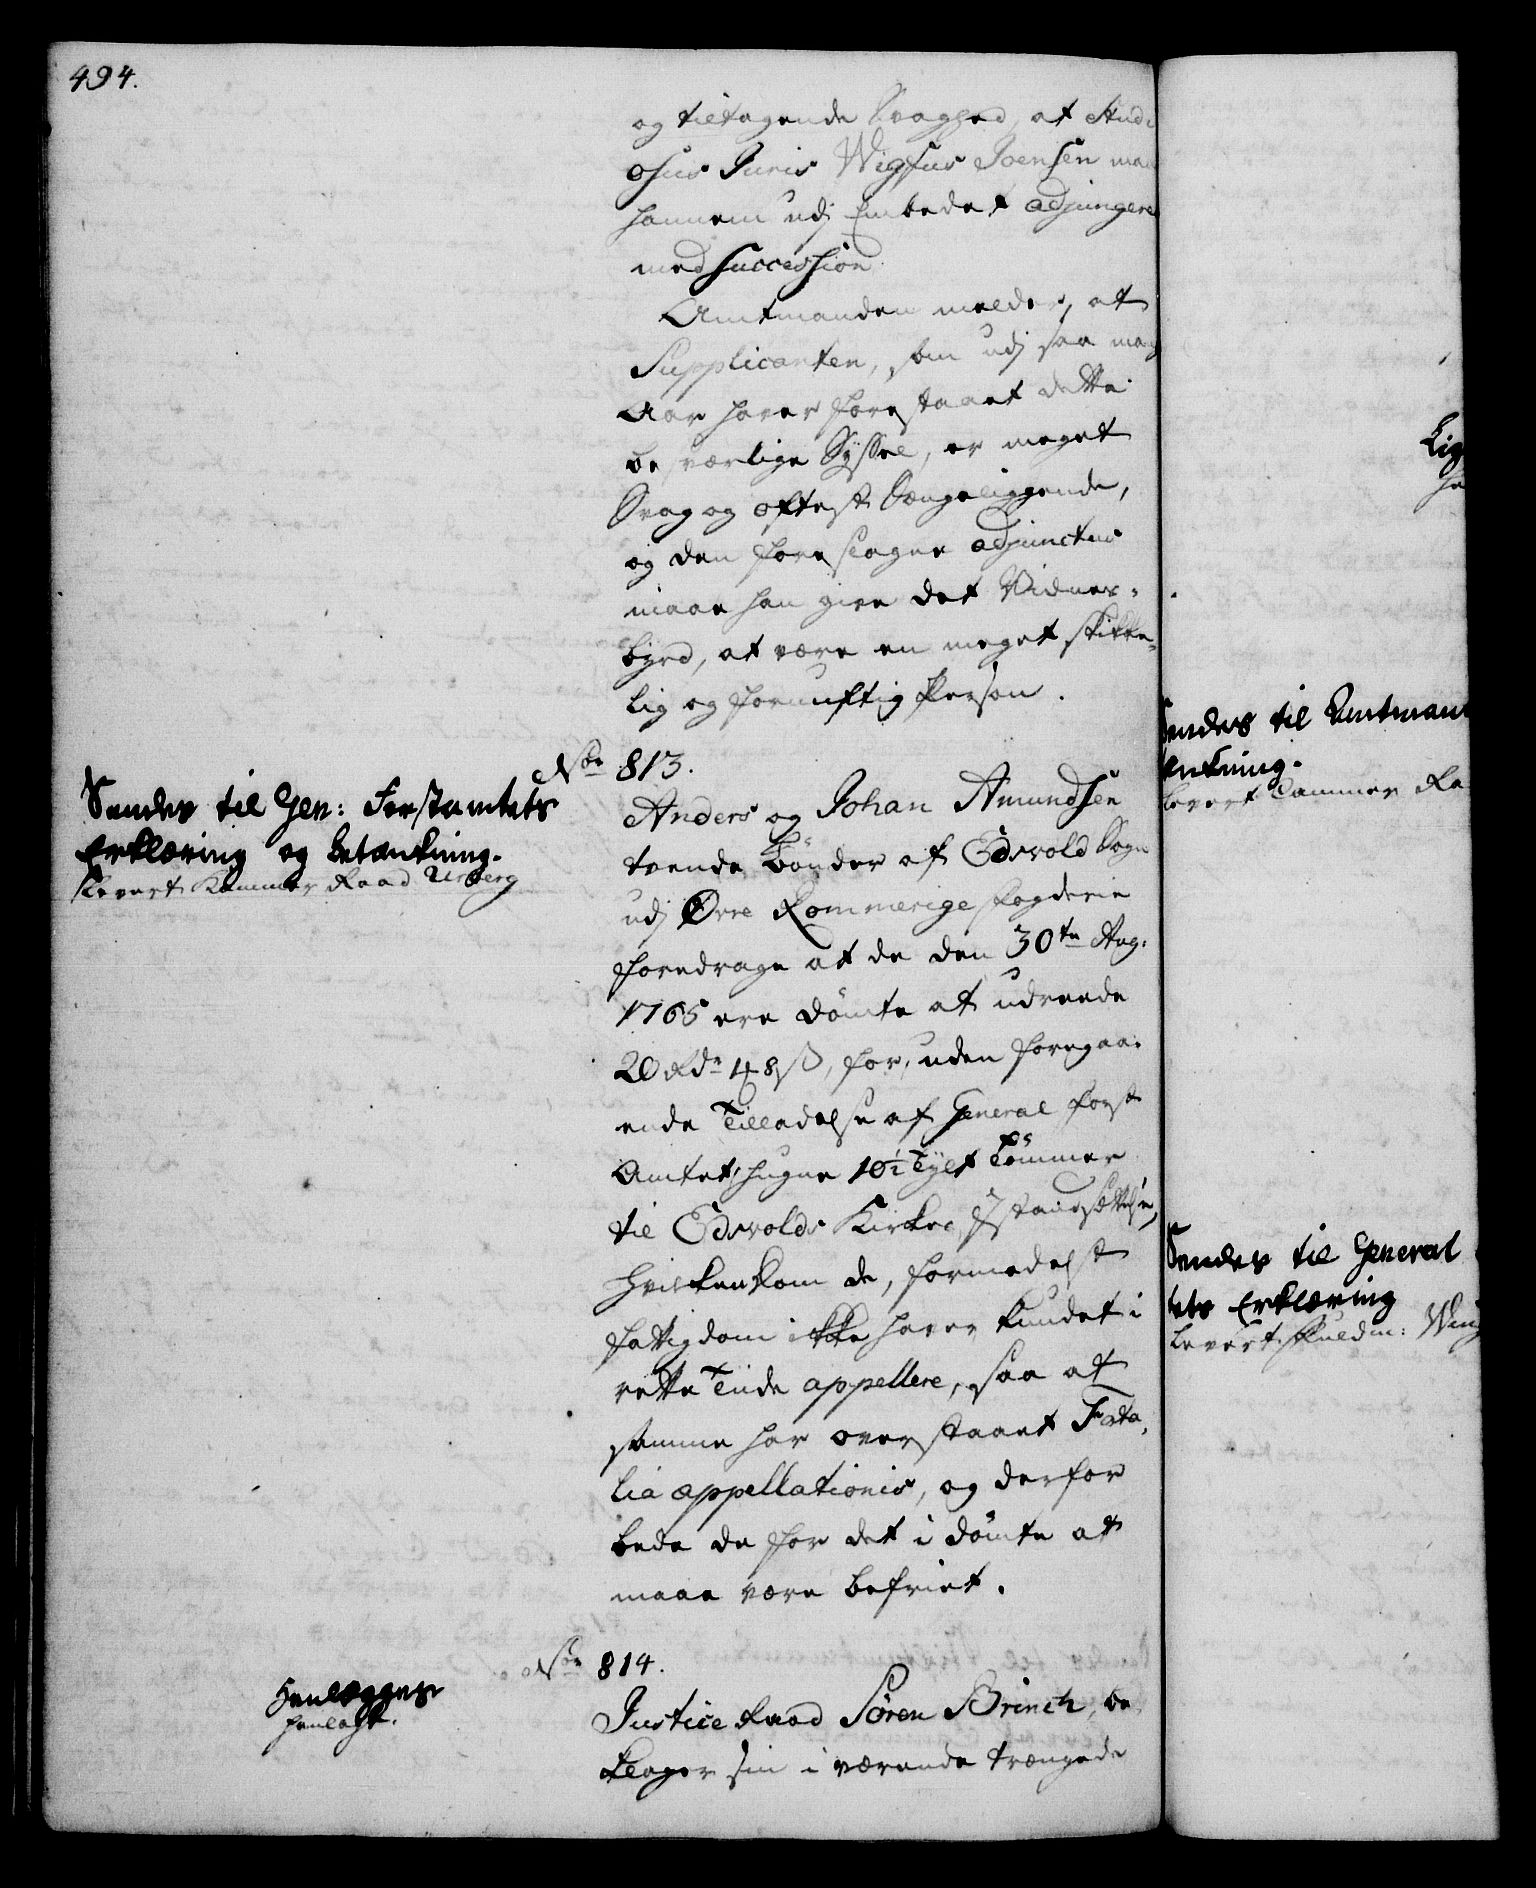 494.
og tiltagende Svaghed, at Studi
osus Juris Wigfus Joensen maa
hannem udj Embedet adjungeres
med Succession
Amtmanden melder, at
Supplicanten, som udj saa mang
Aar haver forestaaet dette
besværlige Syssel, er meget
Svag og oftest Sængeliggende,
og den foreslagne adjunctus
maae han give det Vidnes-
byrd, at være en meget skikke-
lig og fornuftig Person.
Sendes til Gen: Forstamtets
Erklæring og betænkning.
Levert Kammer Raad Ursberg
No 813.
Anders og Johan Amundsen
tvende Bönder af Edsvold Sogn
udj Øvre Rommerige Fogderie
foredrage at de den 30te Aug:
1765 ere dömte at udreede
20 Rdr 48 ß, for, uden foregaa-
ende Tilladelse af General Forst
Amtet, hugne 10½ Tylt Tömmer
til Edsvolds Kirkes Istandsættelse,
hvilken Dom de, formedelst
fattigdom ikke haver kundet i
rette Tiide appellere, saa at
samme har overstaaet Fata-
lia appellationis, og derfor
bede de for det i dömte at
maae være befriet.
Henlægges
henlagt.
No 814.
Justice Raad Sören Brinch, be
klager sin i værende trængede
Lig
he
Sendes til Amtmand
tænkning.
Levert Cammer Ra
Sendes til General
tets Erklæring
Levert Fuldm: Wing